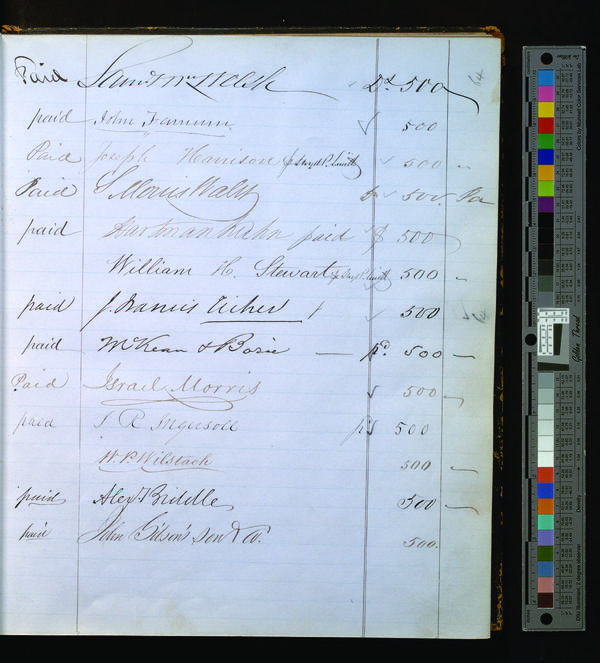 Paid Saml. W. Welsh Pd. 500 64
paid John Farnum 500
Paid Joseph Harrison p Lloyd P. Smith 500
Paid S Morris Waln 500
paid Hartman Kuhn paid 500
William H. Stewart p Lloyd P. Smith 500
paid J. Francis Fisher 500
paid McKean & Borie pd. 500
Paid Israel Morris 500
paid J. R. Ingersoll pd 500
W. P. Wilstach 500
paid Alex J Biddle 500
paid John Gibson's Son & Co. 500.
Golden Thread